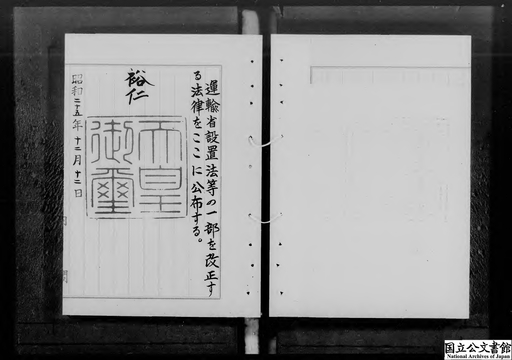 運輸省設置法等の一部を改正す
る法律をここに公布する。
裕仁
天皇
御璽
昭和二十五年十二月十二日
国立公文書館
National Archives of Japan